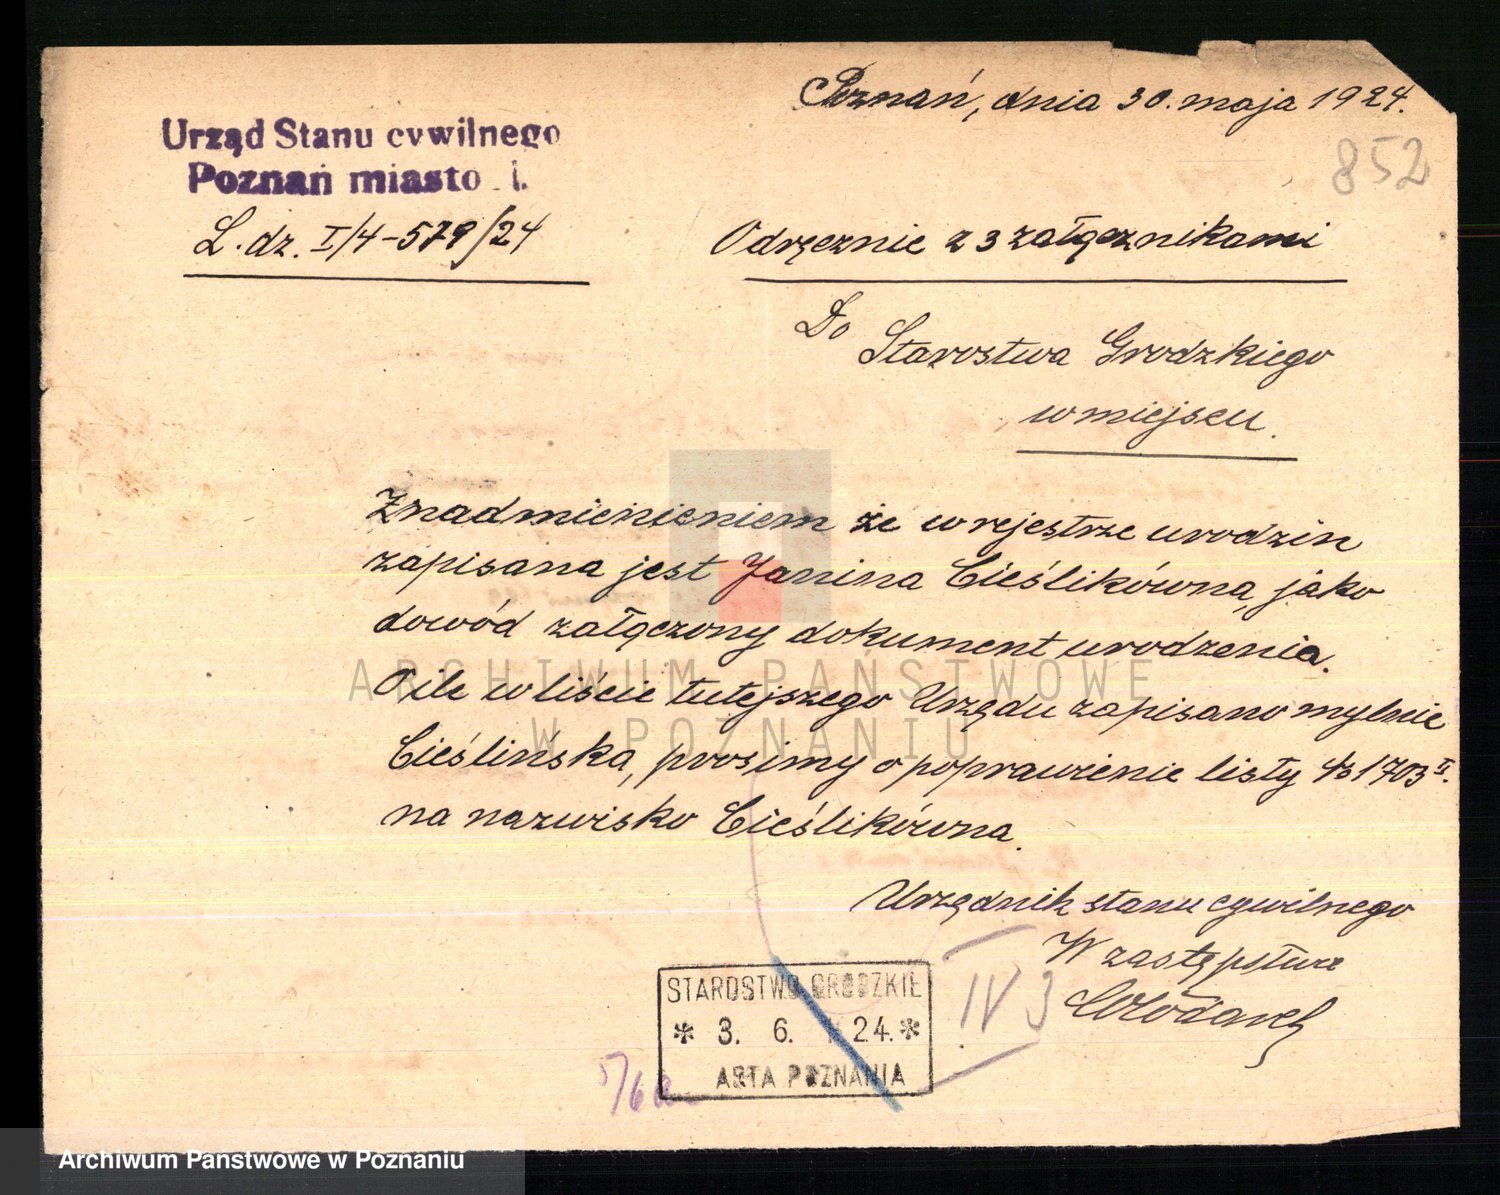 Poznań, dnia 30. maja 1924.
852
Urząd Stanu cywilnego
Poznań miasto I.
L. dz. I/4-579/24
Odręcznie z 3 załącznikami
Do
Starostwa Grodzkiego
w miejscu.
Znadmienieniem że w rejestrze urodzin
zapisana jest Janina Cieślikówna, jako
dowód załączony dokument urodzenia.
O ile w liście tutejszego Urzędu zapisano mylnie
Cieślińska, prosimy o poprawienie listy № 1703 II.
na nazwisko Cieślikówna.
Urzędnik stanu cywilnego
W zastępstwie
STAROSTWO GRODZKIE
* 3. 6. 24. *
ASTA POZNANIA
IV 3
5/6
ARCHIWUM PAŃSTWOWE
W POZNANIU
Archiwum Państwowe w Poznaniu